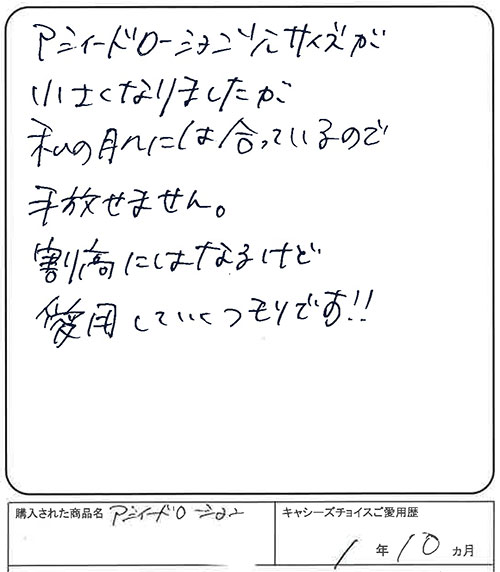 アシィードローションﾞﾝｻｲｽﾞが
小さくなりましたが
私の肌には合っているので
手放せません。
割高にはなるけど
愛用していくつもりです!!
購入された商品名 アシィードローション
キャシーズチョイスご愛用歴
1 年 10 ヵ月